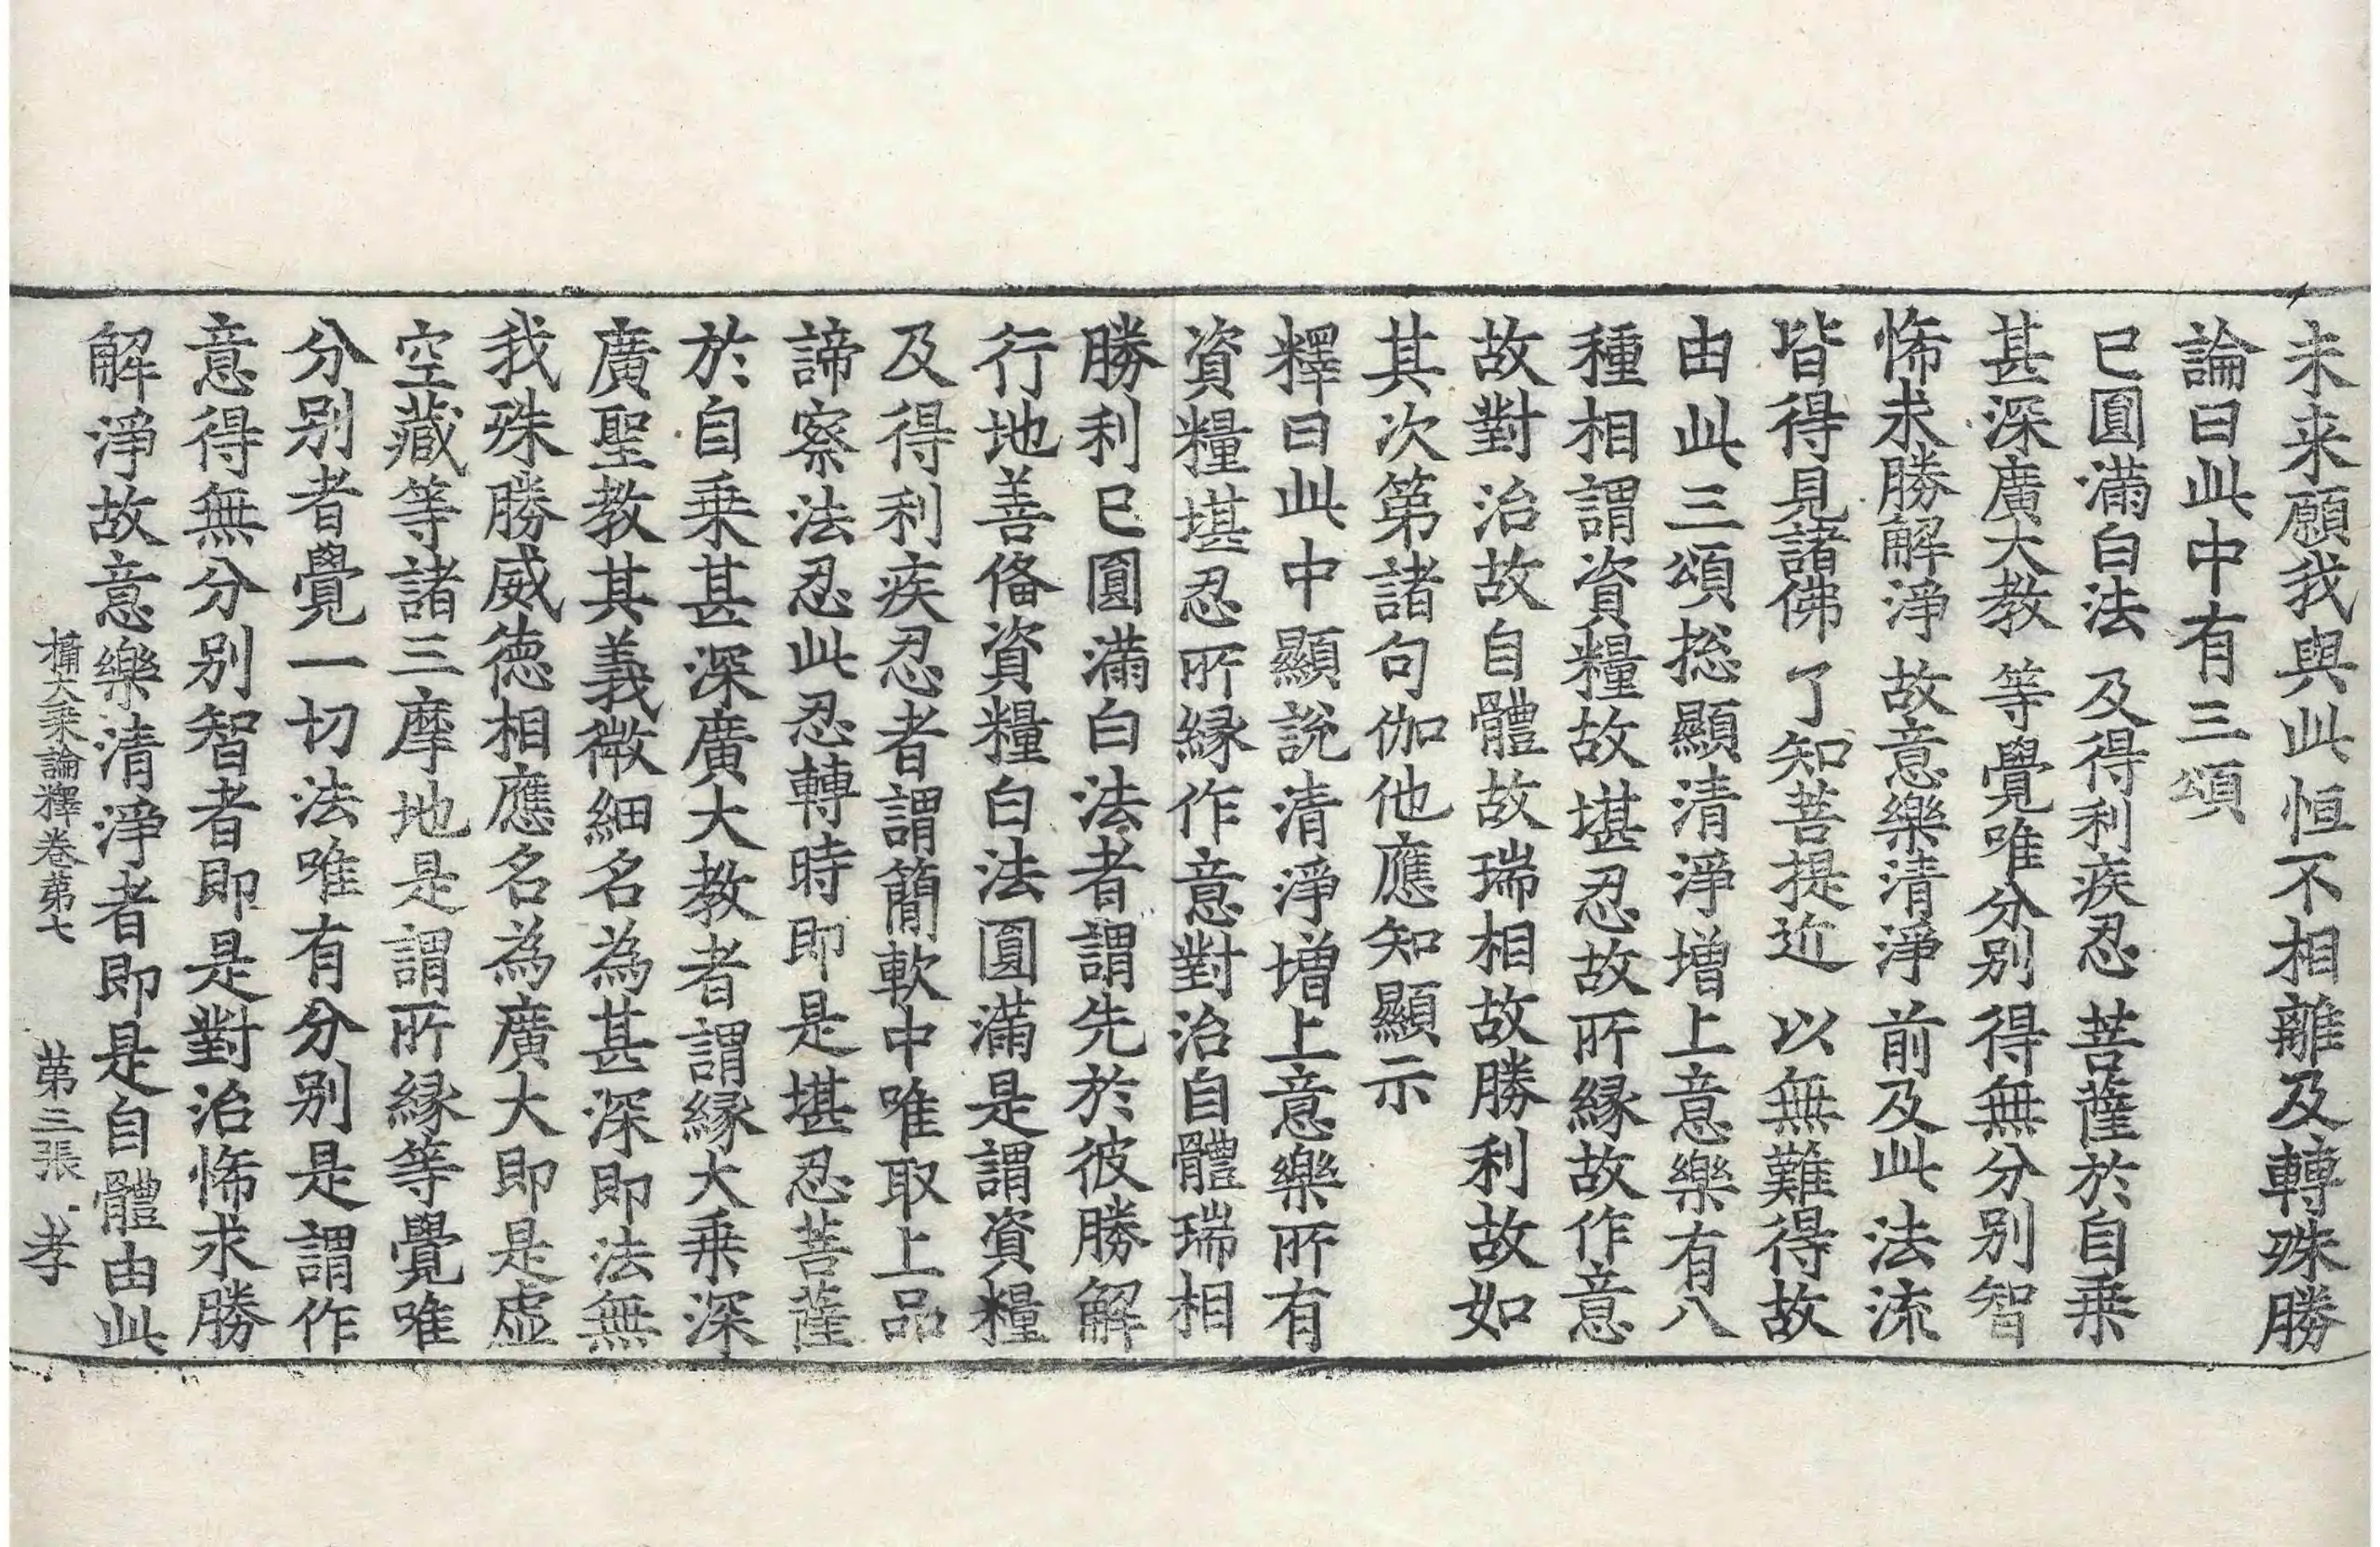 未来願我與此恒不相離及轉殊勝
論曰此中有三頌
已圓滿白法 及得利疾忍 菩薩於自乗
甚深廣大教 等覺唯分別 得無分別智
悕求勝解淨 故意樂清淨 前及此法流
皆得見諸佛 了知菩提近 以無難得故
由此三頌捴顯清淨增上意樂有八
種相謂資糧故堪忍故所縁故作意
故對治故自體故瑞相故勝利故如
其次第諸句伽他應知顯示
釋曰此中顯說清淨增上意樂所有
資糧堪忍所縁作意對治自體瑞相
勝利已圓滿白法者謂先於彼勝解
行地善俻資糧白法圓滿是謂資糧
及得利疾忍者謂簡軟中唯取上品
諦察法忍此忍轉時即是堪忍菩薩
於自乗甚深廣大教者謂縁大乗深
廣聖教其義微細名為甚深即法無
我殊勝威德相應名為廣大即是虛
空藏等諸三摩地是謂所縁等覺唯
分別者覺一切法唯有分別是謂作
意得無分別智者即是對治悕求勝
解淨故意樂清淨者即是自體由此
攝大乗論釋卷第七 第三張 孝